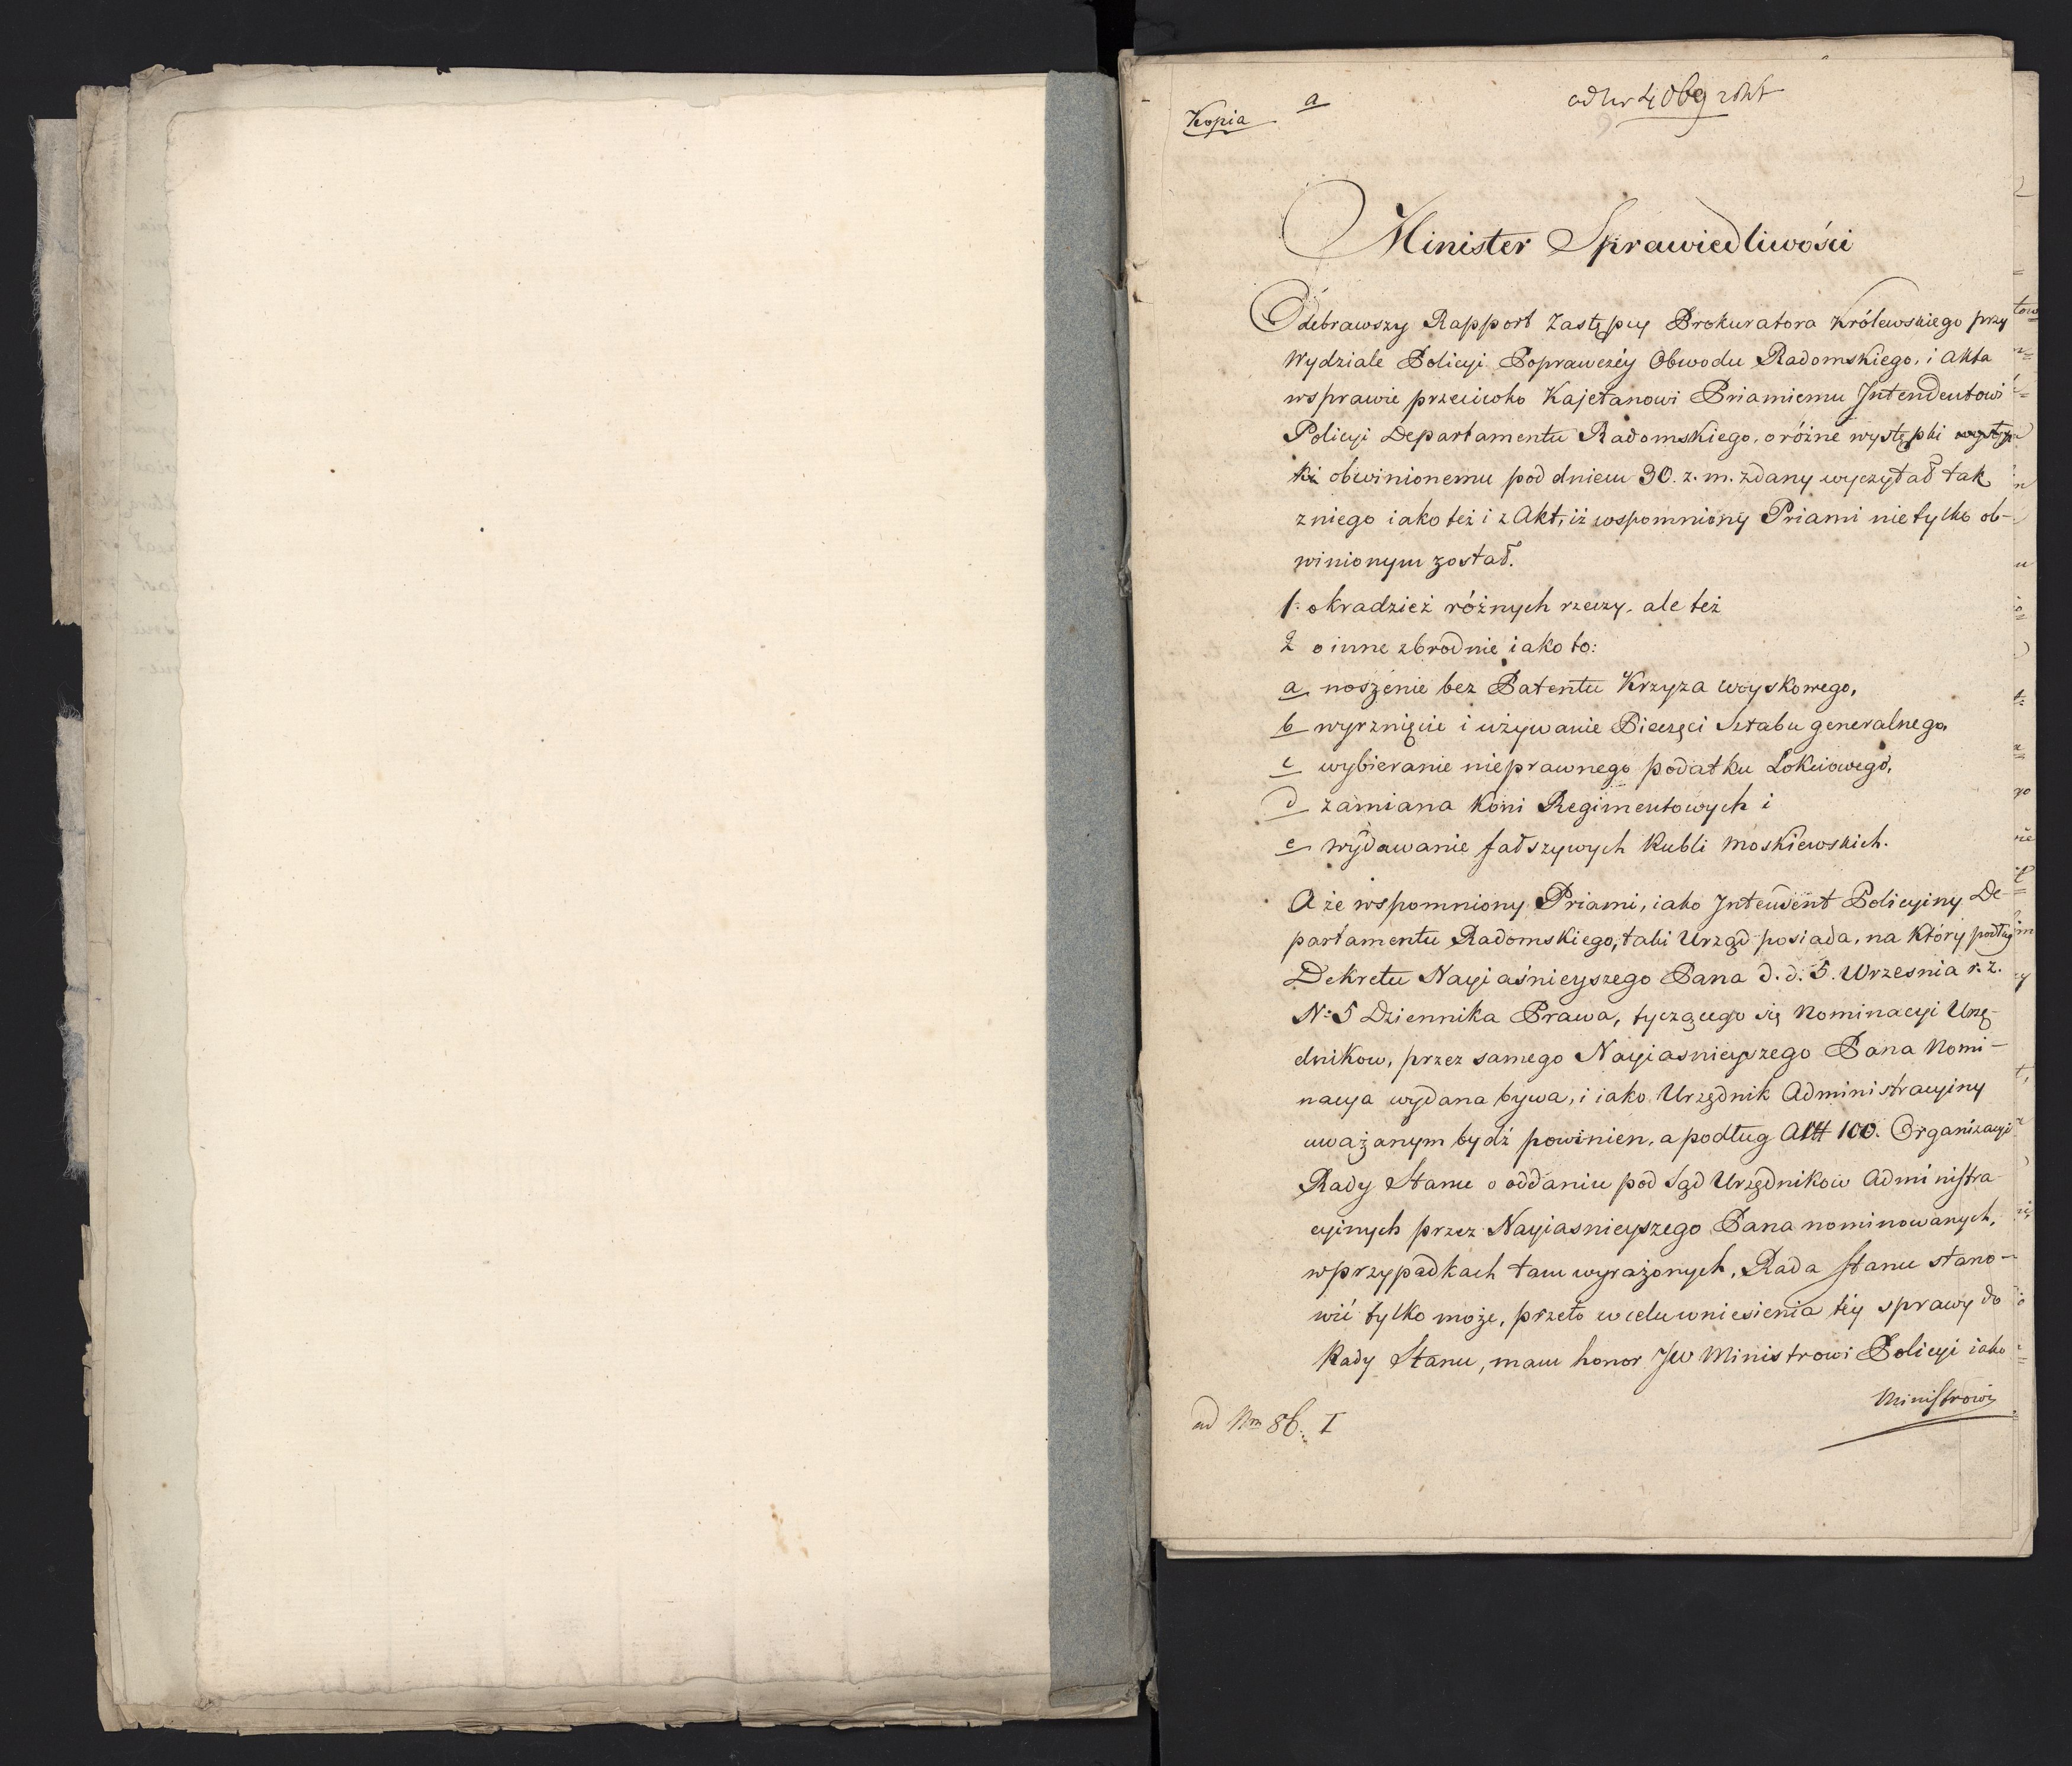 Kopia
a
Minister Sprawiedliwości
Odebrawszy Rapport Zastępcy Prokuratora Królewskiego przy
Wydziale Policyi Poprawczéy Obwodu Radomskiego, i Akta
wsprawie przeciwko Kajetanowi Priamiemu Intendentowi
Policyi Departamentu Radomskiego, o różne występki występ
ki obwinionemu pod dniem 30. z. m. zdany wyczytał tak
zniego iako też i z Akt, iż wspomniony Priami nie tylko ob-
winionym został.
1. o kradzież różnych rzeczy, ale też
2 o inne zbrodnie iako to:
a noszenie bez Patentu Krzyza woyskowego,
b wyrznięcie i używanie Pieczęci Sztabu generalnego,
c wybieranie nieprawnego podatku Lokciowego,
d zamiana Koni Regimentowych i
e wydawanie fałszywych Rubli moskiewskich.
A że wspomniony Priami, iako Intendent Policyiny De-
partamentu Radomskiego, taki Urząd posiada, na który podług
Dekretu Nayiaśnieyszego Pana d. d. 5. Wrzesnia r. z.
N: 5 Dziennika Prawa, tyczącego się Nominacyi Urzę-
dnikow, przez samego Nayiasnieyszego Pana Nomi-
nacya wydana bywa, i iako Urzędnik Administracyiny
uważanym bydź powinien, a podług Art 100. Organizacyi
Rady Stanu o oddaniu pod Sąd Urzędnikow Administra
cyinych przez Nayiasnieyszego Pana nominowanych,
wprzypadkach tam wyrażonych, Rada Stanu stano-
wić tylko może, przeto w celu wniesienia téy sprawy do
Rady Stanu, mam honor JW Ministrowi Policyi iako
Ministrowi
ad Nrm 86. I